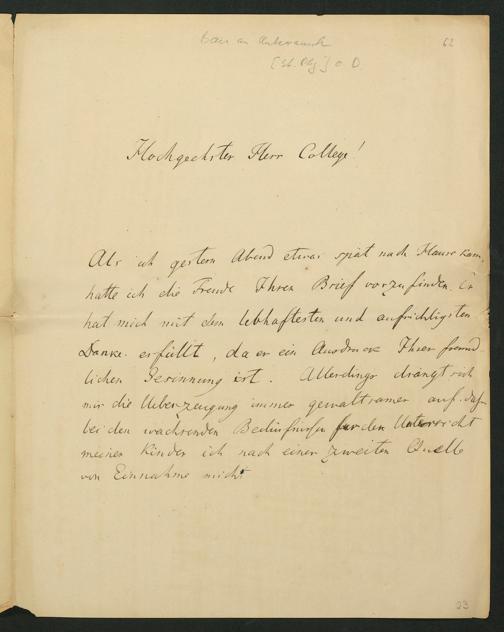 62
[St. Pbg] o. D
Hochgeehrter Herr College!
Als ich gestern Abend etwas spät nach Hause kam,
hatte ich die Freude Ihren Brief vorzufinden. Er
hat mich mit dem lebhaftesten und aufrichtigsten
Danke erfüllt, da er ein Ausdruck Ihrer freund-
lichen Gesinnung ist. Allerdings drängt sich
mir die Ueberzeugung immer gewaltsamer auf, daß
bei den wachsenden Bedürfnissen für den Unterricht
meiner Kinder ich nach einer zweiten Quelle
von Einnahme mich
23